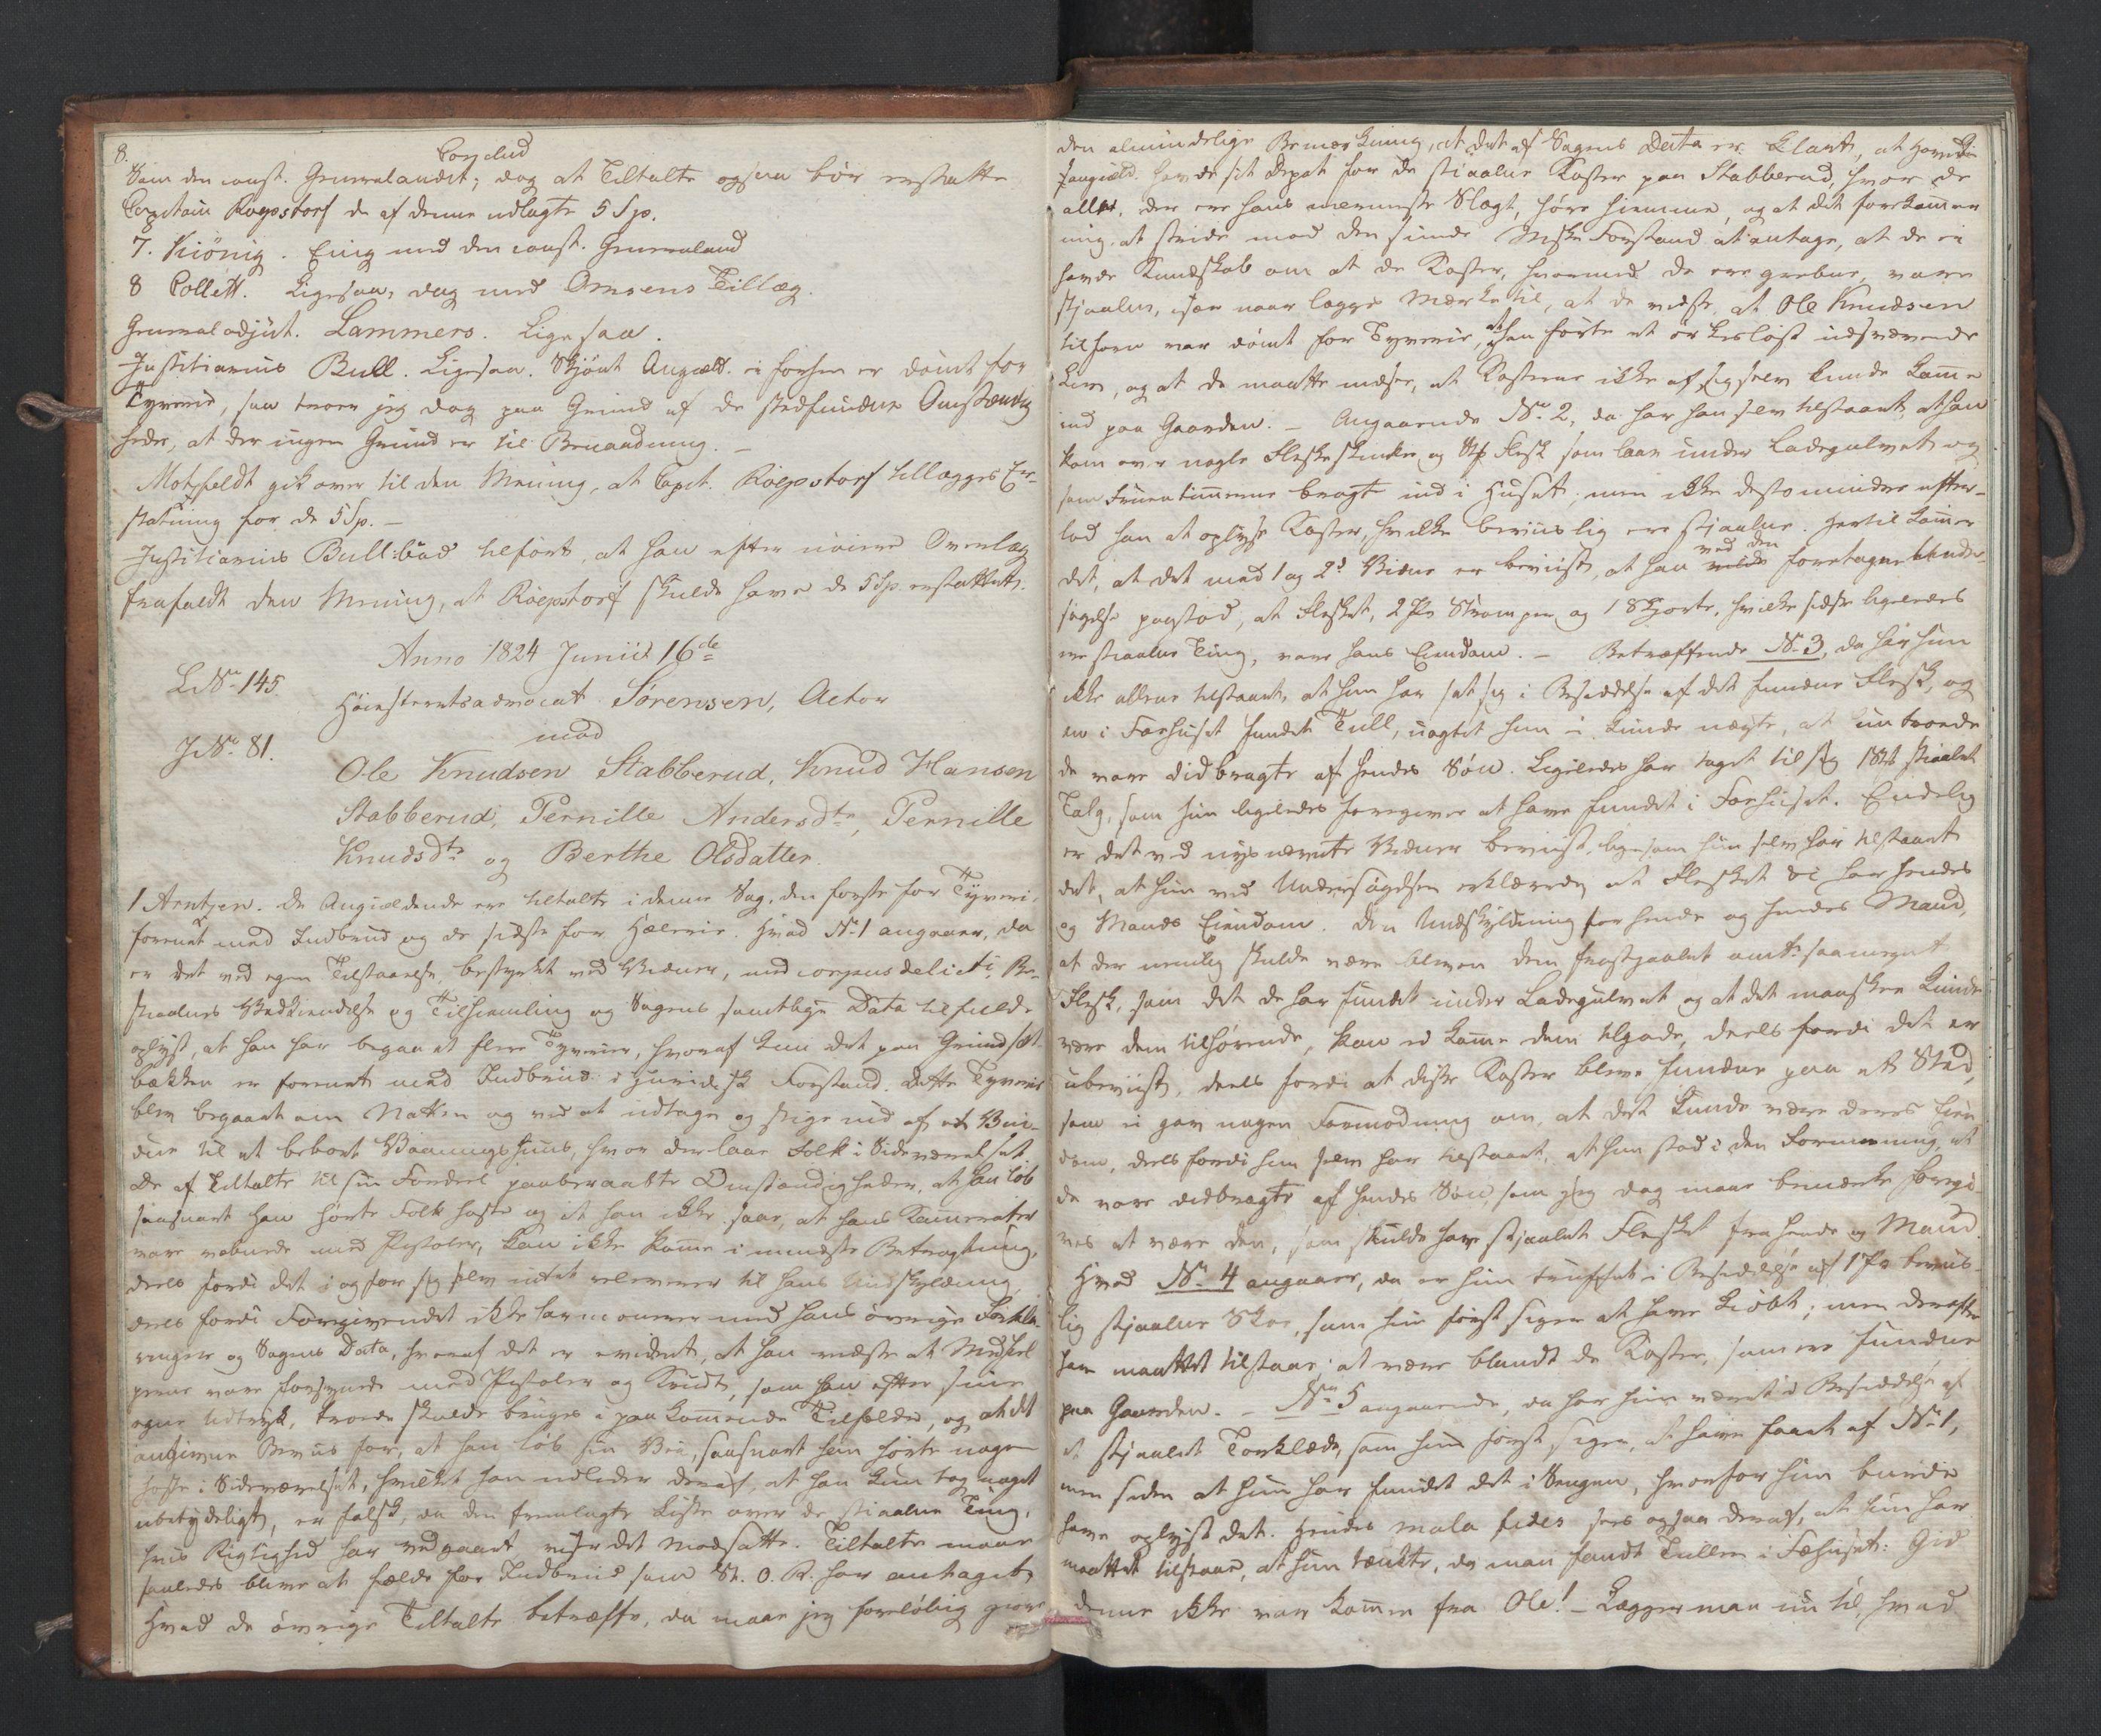 8.
Som den const. Generalaudit; dog at Tiltalte ogsaa bör erstatte
Capitain Roepstorf de af denne udlagte 5 Sp.
7. Kiönig. Enig med den const. Generalaud
8 Collett. Ligesaa, dog med Omsens Tillæg.
Generaladjut. Lammers. Ligesaa.
Justitiarius Bull. Ligesaa. Skjönt Angield. ei forhen er dömt for
Tyverie, saa troer jeg dog paa Grund af de stedfundne Omstændig
heder, at der ingen Grund er til Benaadning. –
Motzfeldt gik over til den Mening, at Capit. Röepstorf tillægges Er-
statning for de 5 Sp. –
Justitiarius Bull: bad tilfört, at han efter nöiere Overlæg
frafaldt den Mening, at Röepstorf skulde have de 5 Sp. erstattet.
Anno 1824 Junii 16de
L. No 145.
Höiesteretsadvocat Sörensen, Actor
mod
J No 81.
Ole Knudsen Stabberud, Knud Hansen
Stabberud, Pernille Andersdtr, Pernille
Knudsdtr og Berthe Olsdatter.
1 Arntzen. De Angieldende ere tiltalte i denne Sag, den förste for Tyveri
forenet med Indbrud og de sidste for Hælerie. Hvad No 1 angaaer, da
er det ved egen Tilstaaelse, bestyrket ved Vidner, med corpus delicti, Be-
staalnes Vedkiendelse og Tilhiemling og Sagens samtlige Data tilfulde
oplyst, at han har begaaet flere Tyverier, hvoraf kun det paa Grindsæt
bakken er forenet med Indbrud i juridisk Forstand. Dette Tyverie
blev begaaet om Natten og ved at udtage og stige ind af et Vin-
due til et beboet Vaaningshuus, hvor der laae Folk i Sideværelset.
De af Tiltalte til sin Fordeel paaberaabte Omstændigheder, at han löb
saasnart han hörte Folk hoste og at han ikke saae, at hans Kamerater
vare væbnede med Pistoler, kan ikke komme i mindste Betragtning,
deels fordi det i og for sig selv intet releverer til hans Undskyldning
deels fordi Foregivendet ikke harmonerer med hans övrige Forkla-
ringer og Sagens Data, hvoraf det er evident, at han vidste at Medhiel
perne vare forsynede med Pistoler og Krudt, som han efter sine
egne Udtryk, troede skulde bruges i paakommende Tilfælde, og at det
angivne Beviis for, at han löb sin Vei, saasnart han hörte nogen
hoste i Sideværelset, hvilket han udleder deraf, at han kun tog noget
ubetydeligt, er falsk, da den fremlagte Liste over de stiaalne Ting,
hvis Rigtighed har vedgaaet viser det modsatte. Tiltalte maae
saaledes blive at fælde for Indbrud som St. O. R. har antaget.
Hvad de övrige Tiltalte betræffe, da maae jeg forelöbig giöre
den almindelige Bemærkning, at det af Sagens Data er klart, at Hoved
Angield. havde sit Depot for de stiaalne Koster paa Stabberud, hvor de
alle, der ere hans nærmeste Slægt, höre hiemme, og at det forekommer
mig, at stride mod den sunde Mske Forstand at antage, at de ei
havde Kundskab om at de Koster, hvormed de ere grebne, vare
stjaalne, især naar lægges Mærke til, at de vidste, at Ole Knudsen
tilforn var dömt for Tyverie, at han förte et örkeslöst udsvævende
Liv, og at de maatte vide, at Kosterne ikke af sig selv kunde komme
ind paa Gaarden. – Angaaende No 2, da har han selv tilstaaet, at han
kom over nogle Fleskeskinker og Stk Flesk som laae under Ladegulvet og
som Fruentimmerne bragte ind i Huset; men ikke destomindre efter-
lod han at oplyse Koster, hvilke beviislig ere stjaalne. Hertil kommer
det, at det med 1 og 2d Vidne er beviist, at han ved den foretagne Under-
sögelse paastod, at Flesket, 2 Par Strömper og 1 Skjorte, hvilke sidste ligeledes
ere stiaalne Ting, vare hans Eiendom. – Betræffende No 3, da har hun
ikke allene tilstaaet, at hun har sat sig i Besiddelse af det fundne Flesk, og
en i Forhuset fundet Tull, uagtet hun ei kunde nægte, at hun troede
de vare didbragte af hendes Sön. Ligeledes har taget til sig 1 Stk stiaalet
Talg, som hun ligeledes foregiver at have fundet i Forhuset. Endelig
er det ved nysnævnte Vidner beviist, ligesom hun selv har tilstaaet
det, at hun ved Undersögelsen erklærede, at Flesket &c har hendes
og Mands Eiendom. Den Undskyldning for hende og hendes Mand,
at der nemlig skulde være bleven dem frastjaalet omtr. saameget
Flesk, som det de har fundet under Ladegulvet og at det maaskee kunde
være dem tilhörende, kan ei komme dem tilgode, deels fordi det er
ubeviist, deels fordi at disse Koster bleve fundne paa et Sted,
som ei gav nogen Formodning om, at det kunde være deres Eien
dom, deels fordi hun selv har tilstaaet, at hun stod i den Formening, at
de vare didbragte af hendes Sön, som jeg dog maae bemærke foregi-
ves at være den, som skulde have stjaalet Flesket fra hende og Mand.
Hvad No 4 angaaer, da er hun truffet i Besiddelse af 1 Par beviis-
lig stjaalne Skoe, som hun först siger at have kiöbt; men derefter
har maattet tilstaae, at være blandt de Koster, som ere fundne
paa Gaarden. – No 5 angaaende, da har hun været i Besiddelse af
et stjaalet Törklæde, som hun först siger, at have faaet af No 1,
men siden at hun har fundet det i Sengen, hvorfor hun burde
have oplyst det. Hendes mala fides sees ogsaa deraf, at hun har
maattet tilstaae, at hun tænkte, da man fandt Tullen i Fæhuset: Gid
denne ikke var kommen fra Ole! – Lægger man nu til, hvad